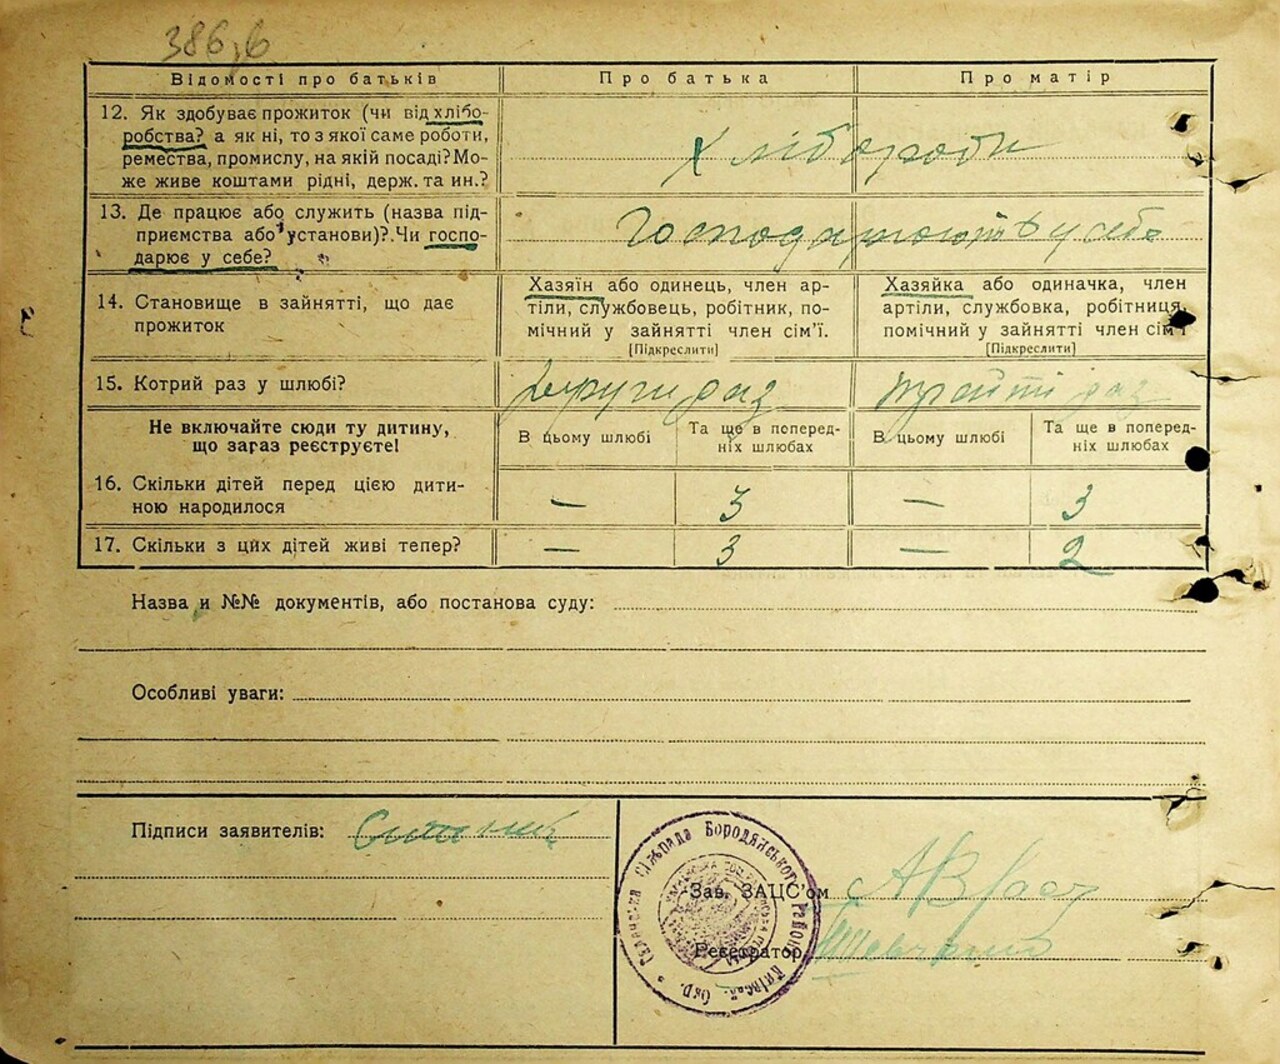 386,в
Відомості про батьків Про батька Про матір
12. Як здобуває прожиток (чи від хлібо-
робства? а як ні, то з якої саме роботи,
ремества, промислу, на якій посаді? Мо-
же живе коштами рідні, держ. та ин.?
Хлібороби
13. Де працює або служить (назва під-
приємства або установи)? Чи госпо-
дарює у себе?
Господарюють у себе
14. Становище в зайнятті, що дає
прожиток
Хазяїн або одинець, член ар-
тіли, службовець, робітник, по-
мічний у зайнятті член сім'ї.
[Підкреслити]
Хазяйка або одиначка, член
артіли, службовка, робітниця,
помічний у зайнятті член сім'ї
[Підкреслити]
15. Котрий раз у шлюбі? други раз трейті раз
Не включайте сюди ту дитину,
що зараз реєструєте!
В цьому шлюбі Та ще в поперед-
ніх шлюбах В цьому шлюбі Та ще в поперед-
ніх шлюбах
16. Скільки дітей перед цією дити-
ною народилося
— 3 — 3
17. Скільки з цих дітей живі тепер? — 3 — 2
Назва и №№ документів, або постанова суду:
Особливі уваги:
Підписи заявителів:
Зав. ЗАЦС'ом
Реєстратор
Сільрада Бородянського району Київськ. Окр.